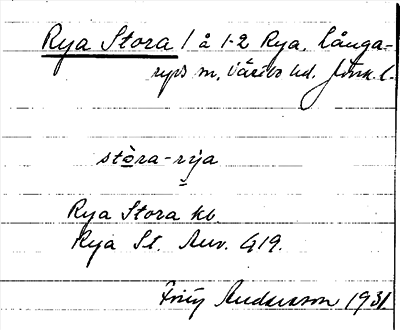 Rya Stora 1 å 1-2 Rya, Långa-
ryds sn, Västbo hd. Jönk. l.
stòra-rya
Rya Stora kb
Rya St. Anv. 419.
Andersson 1931